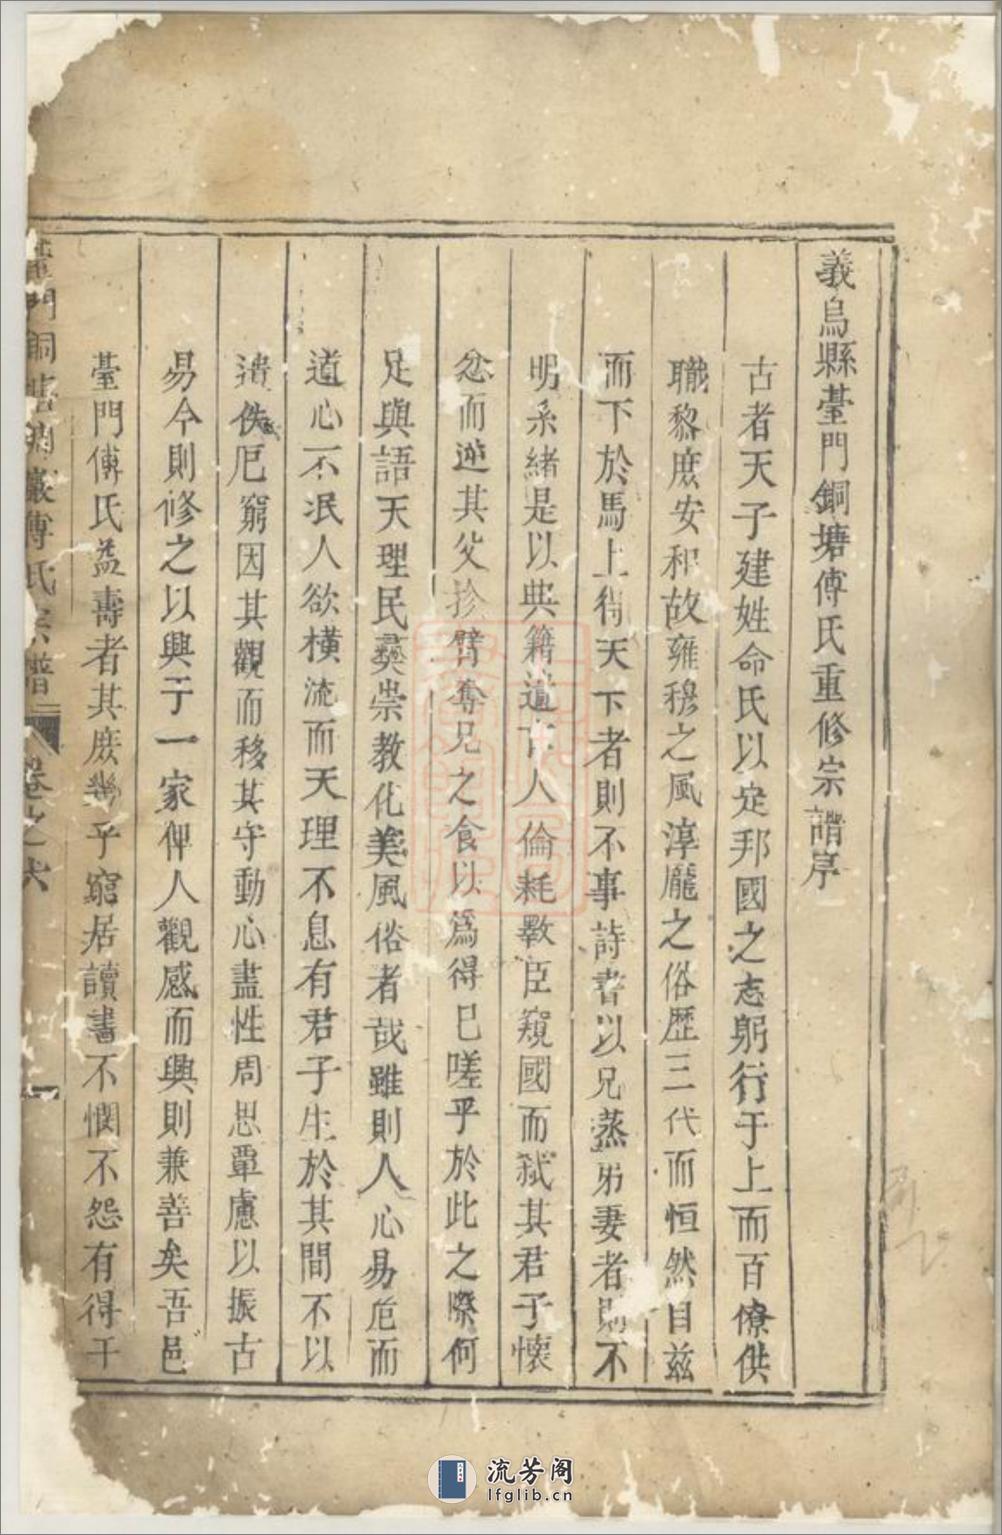 義烏縣臺門銅塘傅氏重修宗譜序
古者天子建姓命氏以定邦國之志躬行于上而百僚供
職黎庶安和故雍穆之風淳龐之俗歷三代而恒然自茲
而下於馬上得天下者則不事詩書以兄蒸弟妻者則不
明系緒是以典籍遺亡人倫耗斁臣窺國而弑其君子懷
忿而逆其父紾臂奪兄之食以爲得已嗟乎於此之際何
足與語天理民彜崇教化美風俗者哉雖則人心易危而
道心不泯人欲橫流而天理不息有君子生於其間不以
遺佚厄窮因其觀而移其守動心盡性周思覃慮以振古
易今則修之以興于一家俾人觀感而興則兼善矣吾邑
臺門傅氏益壽者其庶幾乎窮居讀書不憫不怨有得于
臺門銅塘洞巖傅氏宗譜 卷之六 一
流芳阁
lfglib.cn